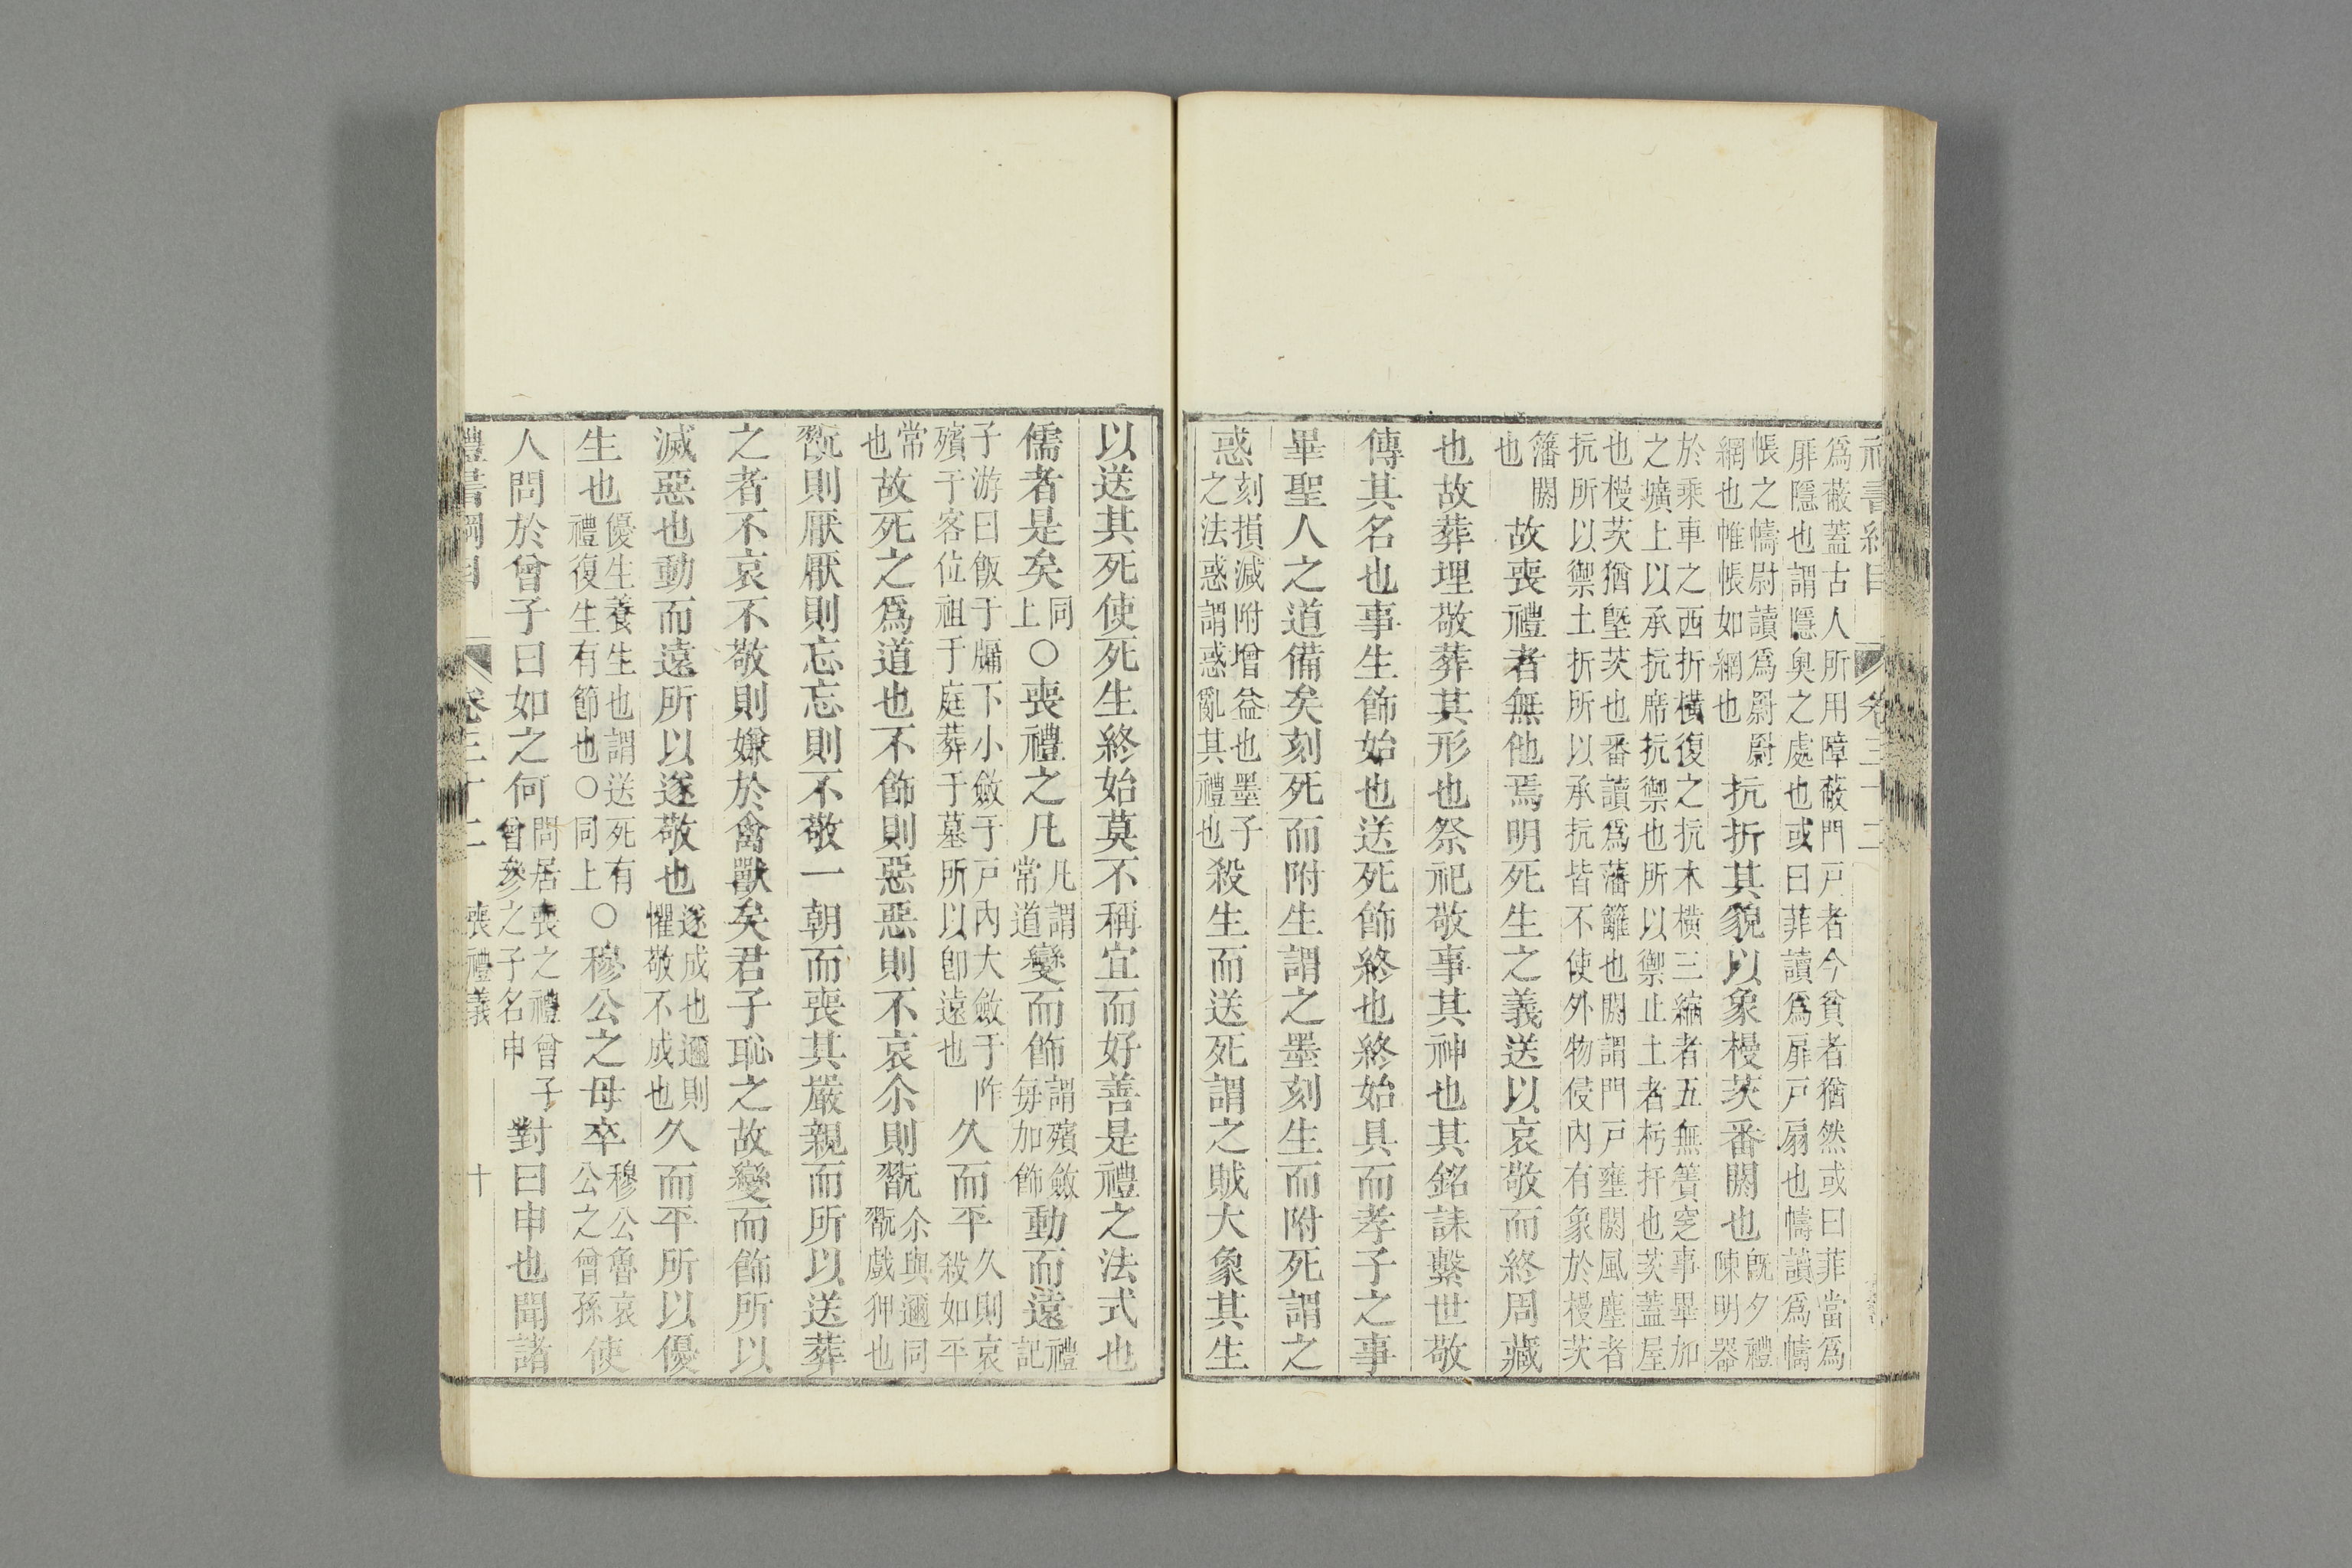 禮書綱目 卷三十二
爲蔽蓋古人所用障蔽門戸者今貧者猶然或曰菲當爲
厞隱也謂隱奧之處也或曰菲讀爲扉戸扇也幬讀爲幬
帳之幬尉讀爲罻罻網也帷帳如網也抗折其貌以象槾茨番閼也旣夕禮陳明器
於乘車之西折橫復之抗木橫三縮者五無簀窆事畢加
之壙上以承抗席抗禦也所以禦止土者杇扜也茨蓋屋
也槾茨猶塈茨也番讀爲藩籬也閼謂門戸壅閼風塵者
抗所以禦土折所以承抗皆不使外物侵內有象於槾茨
籓閼也故喪禮者無他焉明死生之義送以哀敬而終周藏
也故葬埋敬葬其形也祭祀敬事其神也其銘誄繫世敬
傳其名也事生飾始也送死飾終也終始具而孝子之事
畢聖人之道備矣刻死而附生謂之墨刻生而附死謂之
惑刻損減附增益也墨子之法惑謂惑亂其禮也殺生而送死謂之賊大象其生
以送其死使死生終始莫不稱宜而好善是禮之法式也
儒者是矣同上○喪禮之凡凡謂常道變而飾謂殯斂每加飾動而遠禮記
子游曰飯于牖下小斂于戸內大斂于阼殯于客位祖于庭葬于墓所以卽遠也久而平久則哀殺如平
常也故死之爲道也不飾則惡惡則不哀尒則翫尒與邇同翫戲狎也
翫則厭厭則忘忘則不敬一朝而喪其嚴親而所以送葬
之者不哀不敬則嫌於禽獸矣君子恥之故變而飾所以
滅惡也動而遠所以遂敬也遂成也邇則懼敬不成也久而平所以優
生也優生養生也謂送死有禮復生有節也○同上○穆公之母卒穆公魯哀公之曾孫使
人問於曾子曰如之何問居喪之禮曾子曾參之子名申對曰申也聞諸
禮書綱目 卷三十二 喪禮義 十